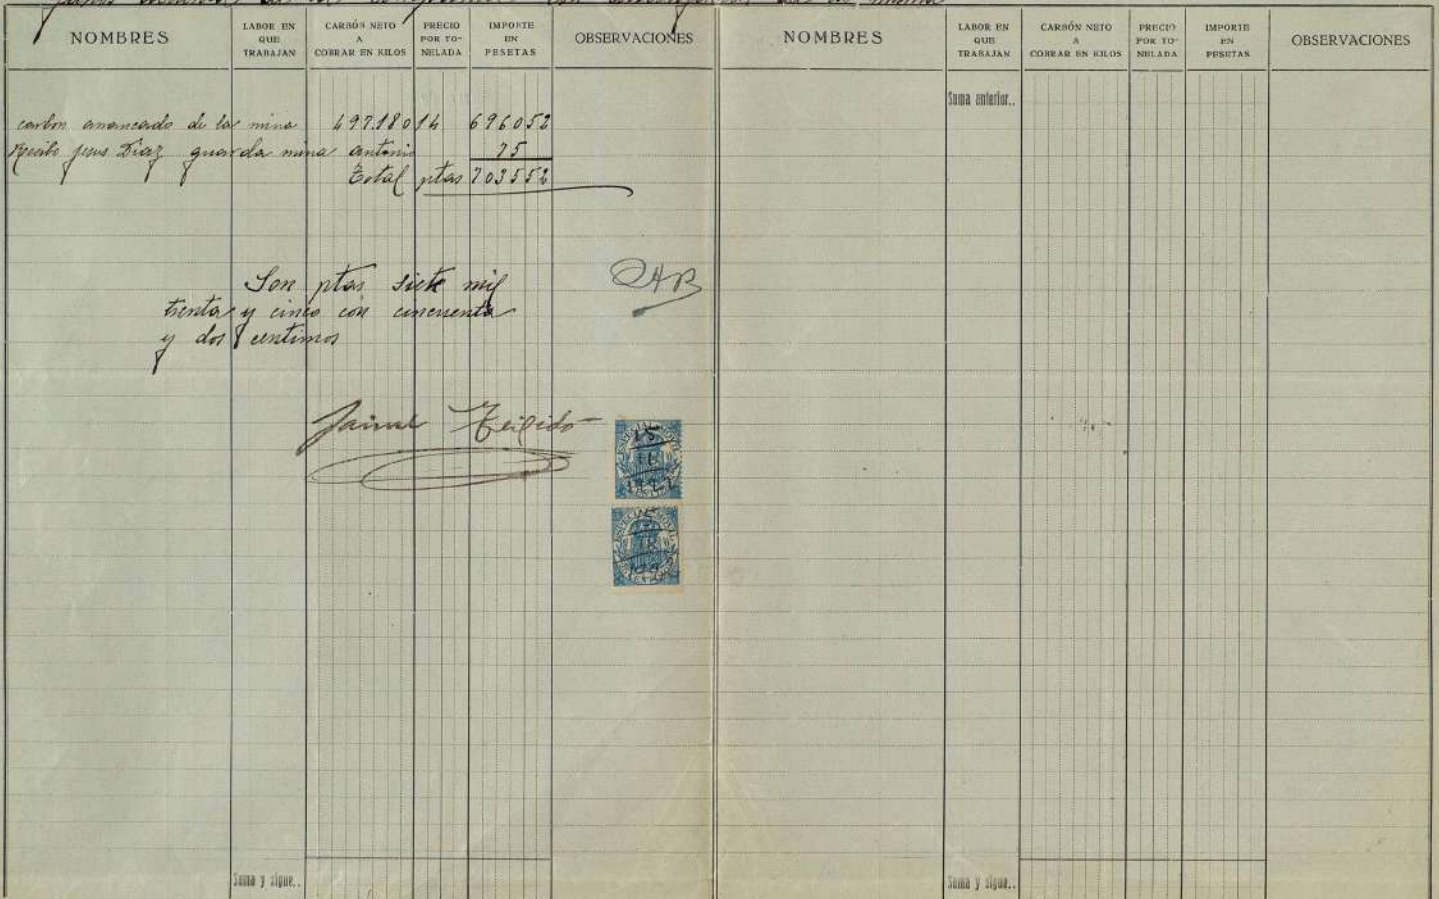 NOMBRES
LABOR EN QUE TRABAJAN
CARBÓN NETO A COBRAR EN KILOS
PRECIO POR TONELADA
IMPORTE EN PESETAS
OBSERVACIONES
carbon arrancado de la mina 497.180 14 696052
Recibo jesus Diaz guarda mina antonio 75
Total ptas 703552
Son ptas siete mil
trenta y cinco con cincuenta
y dos centimos
Jaime
ESPECIAL MOVIL
15
11
ESPECIAL MOVIL
Suma y sigue..
NOMBRES
LABOR EN QUE TRABAJAN
CARBÓN NETO A COBRAR EN KILOS
PRECIO POR TONELADA
IMPORTE EN PESETAS
OBSERVACIONES
Suma anterior..
Suma y sigue..